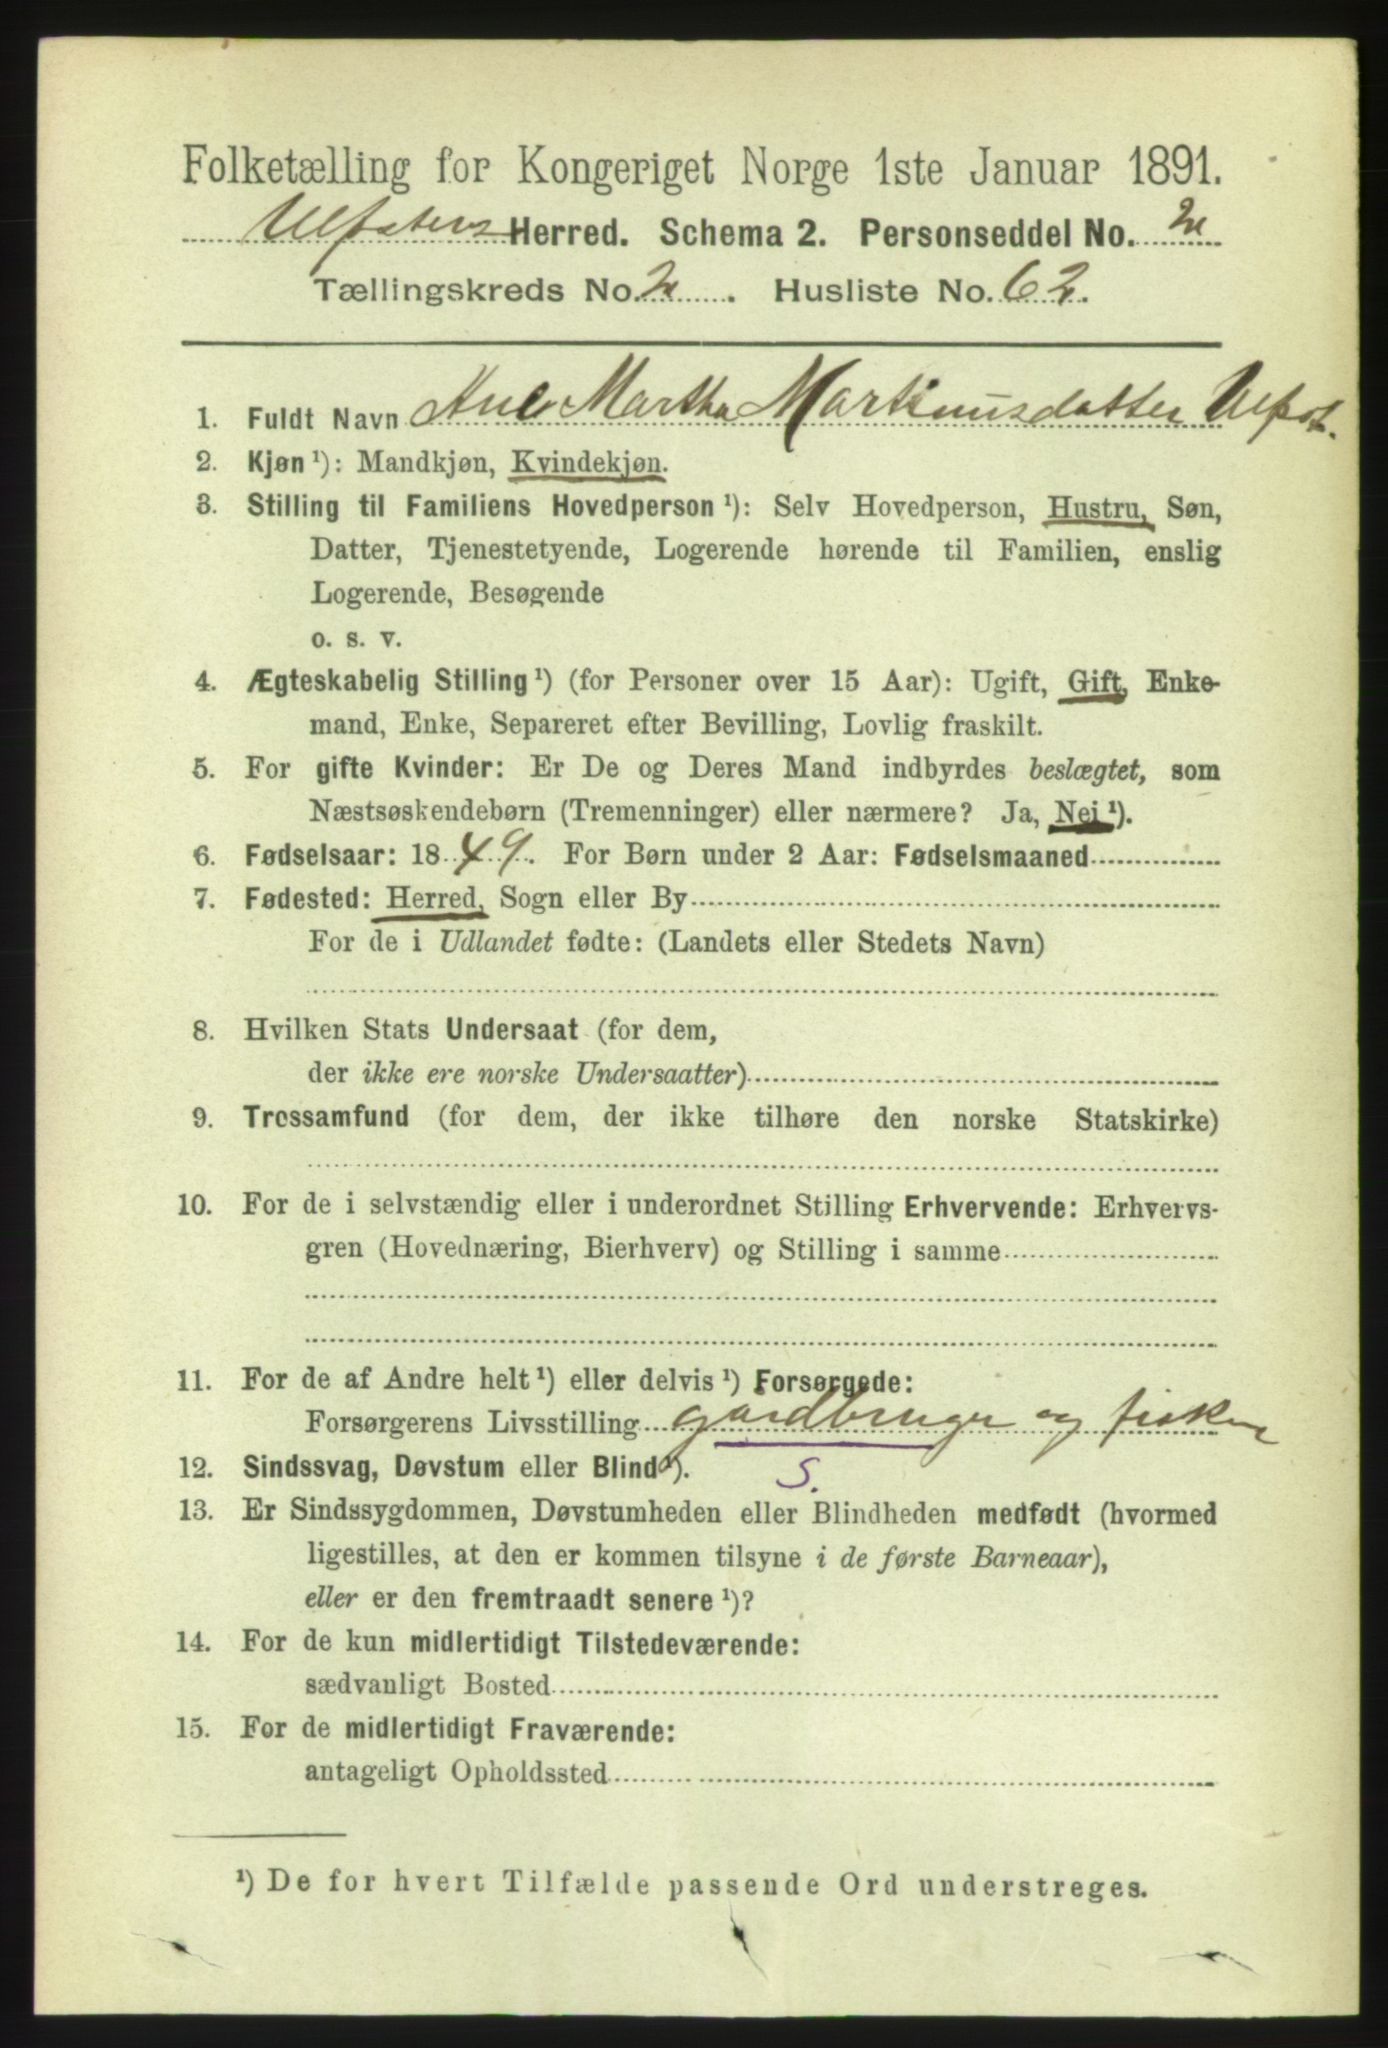 Folketælling for Kongeriget Norge 1ste Januar 1891.
Ulfstens Herred. Schema 2. Personseddel No. 2
Tællingskreds No. 2. Husliste No. 62.
1. Fuldt Navn Ane Martha Martinusdatter Ulfst.
2. Kjøn ¹): Mandkjøn, Kvindekjøn.
3. Stilling til Familiens Hovedperson ¹): Selv Hovedperson, Hustru, Søn,
Datter, Tjenestetyende, Logerende hørende til Familien, enslig
Logerende, Besøgende
o. s. v.
4. Ægteskabelig Stilling ¹) (for Personer over 15 Aar): Ugift, Gift, Enke-
mand, Enke, Separeret efter Bevilling, Lovlig fraskilt.
5. For gifte Kvinder: Er De og Deres Mand indbyrdes beslægtet, som
Næstsøskendebørn (Tremenninger) eller nærmere? Ja, Nei ¹).
6. Fødselsaar: 1849. For Børn under 2 Aar: Fødselsmaaned
7. Fødested: Herred, Sogn eller By
For de i Udlandet fødte: (Landets eller Stedets Navn)
8. Hvilken Stats Undersaat (for dem,
der ikke ere norske Undersaatter)
9. Trossamfund (for dem, der ikke tilhøre den norske Statskirke)
10. For de i selvstændig eller i underordnet Stilling Erhvervende: Erhvervs-
gren (Hovednæring, Bierhverv) og Stilling i samme
11. For de af Andre helt ¹) eller delvis ¹) Forsørgede:
Forsørgerens Livsstilling gardbruger og fisker
12. Sindssvag, Døvstum eller Blind ¹). S.
13. Er Sindssygdommen, Døvstumheden eller Blindheden medfødt (hvormed
ligestilles, at den er kommen tilsyne i de første Barneaar),
eller er den fremtraadt senere ¹)?
14. For de kun midlertidigt Tilstedeværende:
sædvanligt Bosted
15. For de midlertidigt Fraværende:
antageligt Opholdssted
¹) De for hvert Tilfælde passende Ord understreges.